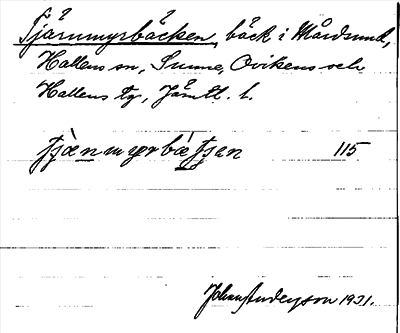 Tjärnmyrbäcken, bäck i Mårdsund,
Hallens sn, Sunne, Ovikens och
Hallens tg, Jämtl. l.
115
Johan Anderson 1931.